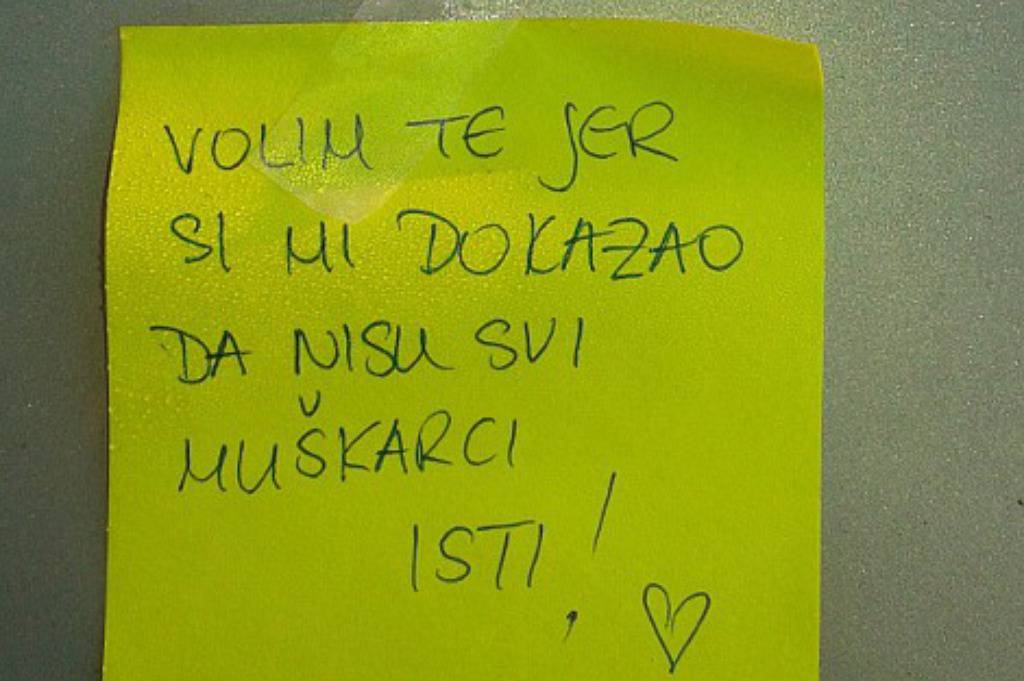 VOLIM TE JER
SI MI DOKAZAO
DA NISU SVI
MUŠKARCI
ISTI!